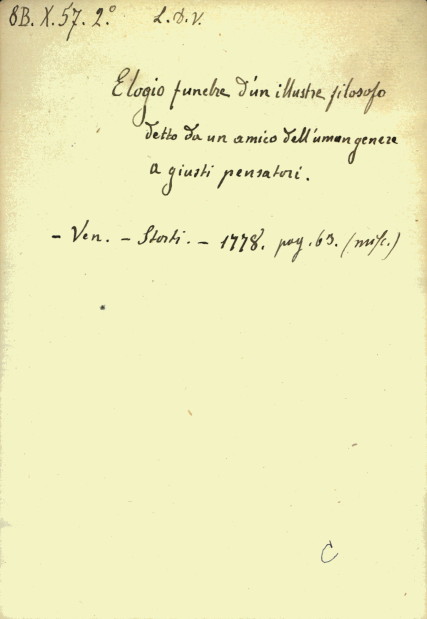 8B. X. 57. 2.° L. D. V.
Elogio funebre d'un illustre filosofo
detto da un amico dell'uman genere
a giusti pensatori.
- Ven. - Storti. - 1778. pag. 63. (misc.)
C